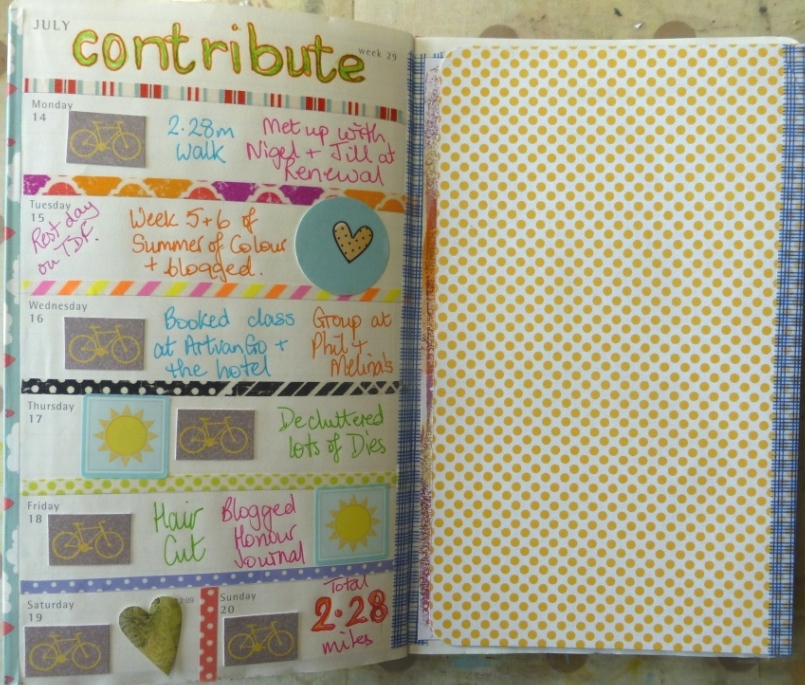 JULY
contribute
week 29
Monday
14
2.28m
walk
Met up with
Nigel + Jill at
Renewal
Tuesday
15
Rest day
on TDF.
Week 5+6 of
Summer of Colour
+ blogged.
Wednesday
16
Booked class
at ArtvanGo +
the hotel
Group at
Phil +
Melina's
Thursday
17
Decluttered
lots of Dies
Friday
18
Hair
Cut
Blogged
Honour
Journal
Saturday
19
Sunday
20
Total
2.28
miles